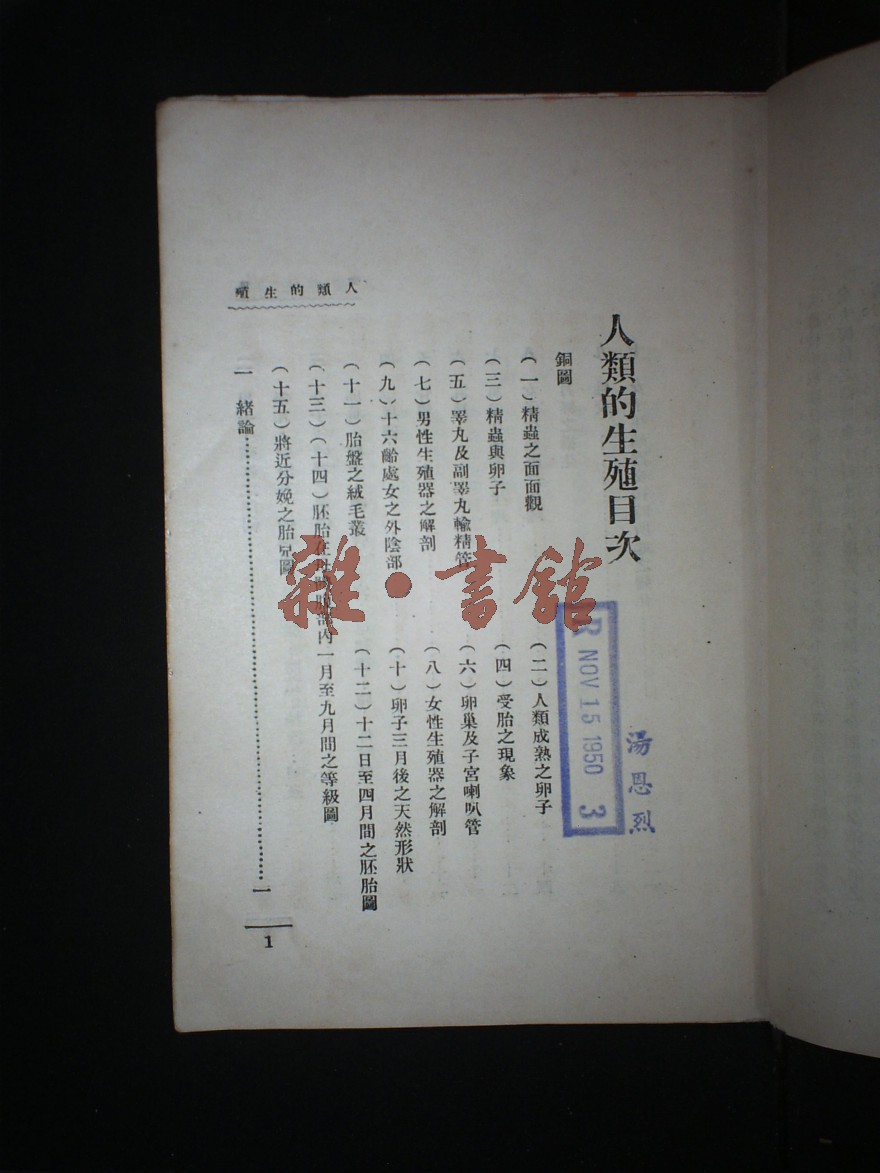 人類的生殖目次
銅圖
(一)精蟲之面面觀
(二)人類成熟之卵子
(三)精蟲與卵子
(四)受胎之現象
(五)睪丸及副睪丸輸精管
(六)卵巢及子宮喇叭管
(七)男性生殖器之解剖
(八)女性生殖器之解剖
(九)十六齡處女之外陰部
(十)卵子三月後之天然形狀
(十一)胎盤之絨毛叢
(十二)十二日至四月間之胚胎圖
(十三)(十四)胚胎在 內一月至九月間之等級圖
(十五)將近分娩之胎兒圖
一 緒論………………一
人類的生殖
1
雜·書館
R NOV 15 1950 3
湯恩烈